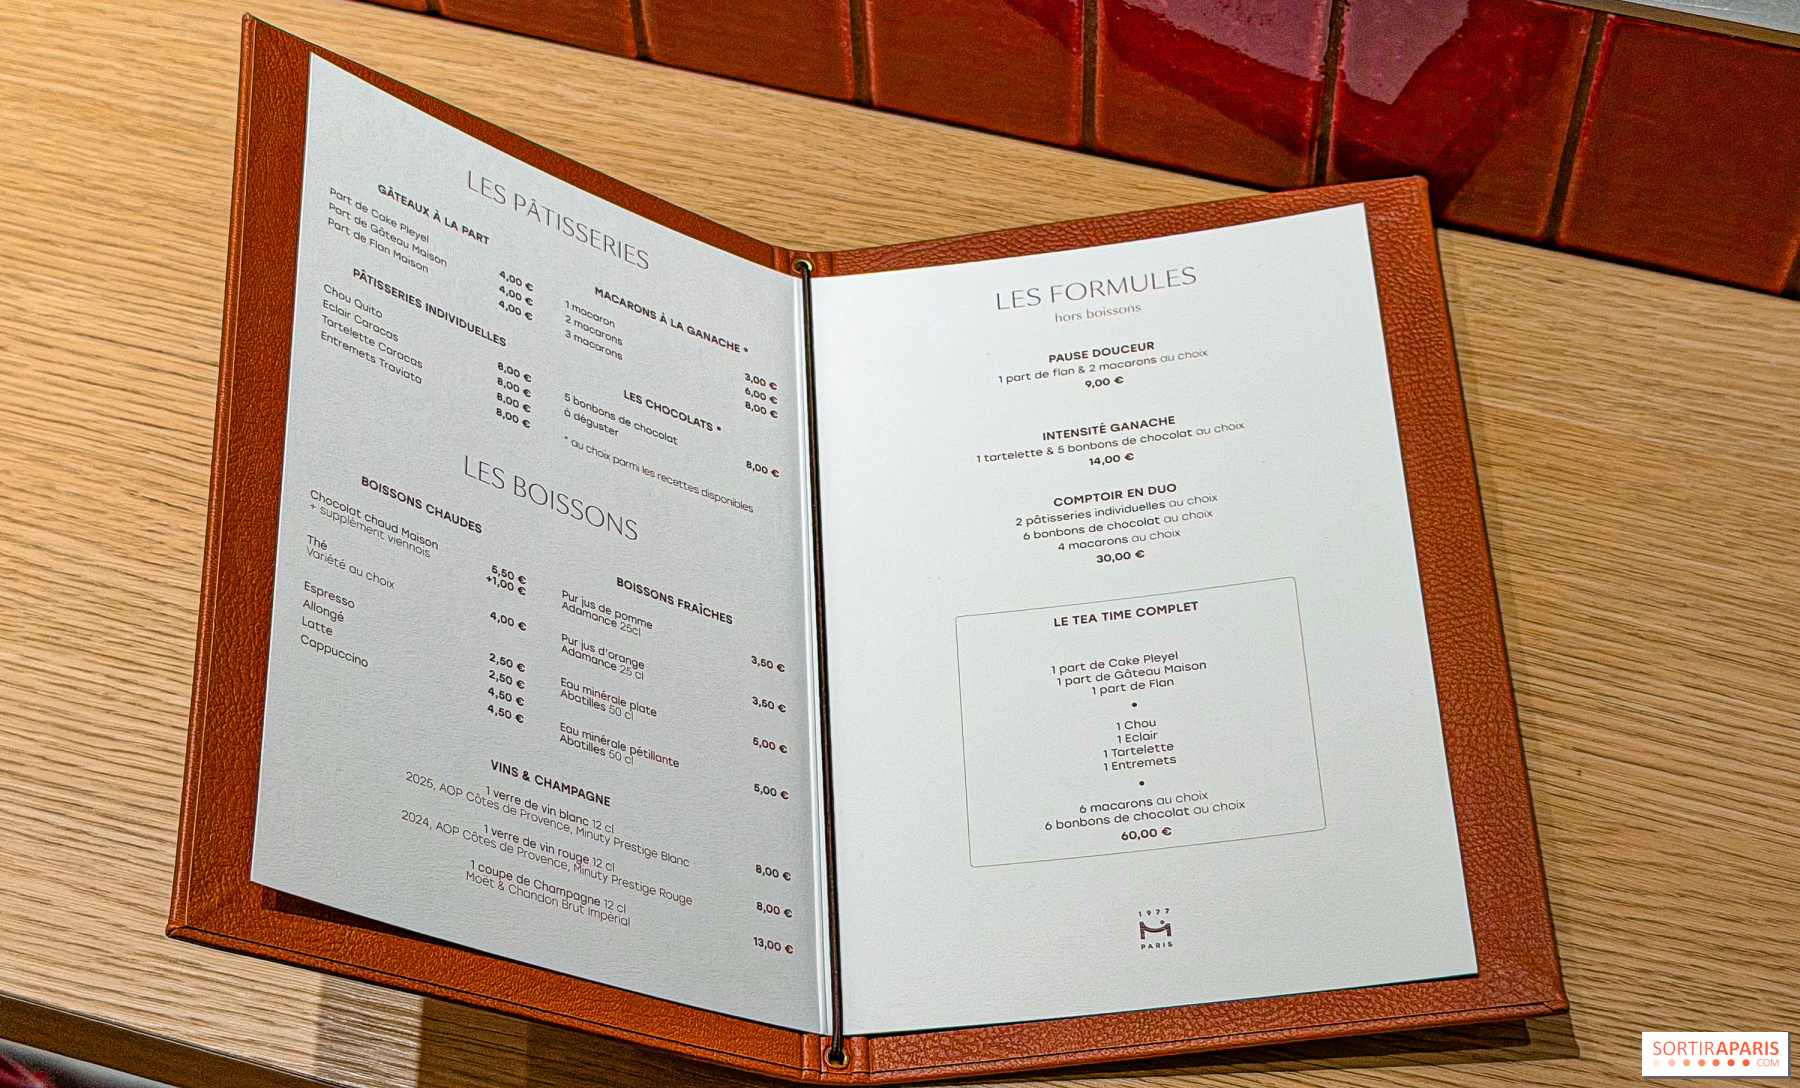 LES PÂTISSERIES
GÂTEAUX À LA PART
Part de Cake Pleyel 4,00 €
Part de Gâteau Maison 4,00 €
Part de Flan Maison 4,00 €
PÂTISSERIES INDIVIDUELLES
Chou Quito 8,00 €
Eclair Caracas 8,00 €
Tartelette Caracas 8,00 €
Entremets Traviata 8,00 €
MACARONS À LA GANACHE *
1 macaron 3,00 €
2 macarons 6,00 €
3 macarons 8,00 €
LES CHOCOLATS *
5 bonbons de chocolat
à déguster 8,00 €
* au choix parmi les recettes disponibles
LES BOISSONS
BOISSONS CHAUDES
Chocolat chaud Maison 5,50 €
+ supplément viennois +1,00 €
Thé 4,00 €
Variété au choix
Espresso 2,50 €
Allongé 2,50 €
Latte 4,50 €
Cappuccino 4,50 €
BOISSONS FRAÎCHES
Pur jus de pomme 3,50 €
Adamance 25cl
Pur jus d'orange 3,50 €
Adamance 25 cl
Eau minérale plate 5,00 €
Abatilles 50 cl
Eau minérale pétillante 5,00 €
Abatilles 50 cl
VINS & CHAMPAGNE
1 verre de vin blanc 12 cl 8,00 €
2025, AOP Côtes de Provence, Minuty Prestige Blanc
1 verre de vin rouge 12 cl 8,00 €
2024, AOP Côtes de Provence, Minuty Prestige Rouge
1 coupe de Champagne 12 cl 13,00 €
Moët & Chandon Brut Impérial
LES FORMULES
hors boissons
PAUSE DOUCEUR
1 part de flan & 2 macarons au choix
9,00 €
INTENSITÉ GANACHE
1 tartelette & 5 bonbons de chocolat au choix
14,00 €
COMPTOIR EN DUO
2 pâtisseries individuelles au choix
6 bonbons de chocolat au choix
4 macarons au choix
30,00 €
LE TEA TIME COMPLET
1 part de Cake Pleyel
1 part de Gâteau Maison
1 part de Flan
•
1 Chou
1 Eclair
1 Tartelette
1 Entremets
•
6 macarons au choix
6 bonbons de chocolat au choix
60,00 €
1977
PARIS
SORTIRAPARIS
.COM